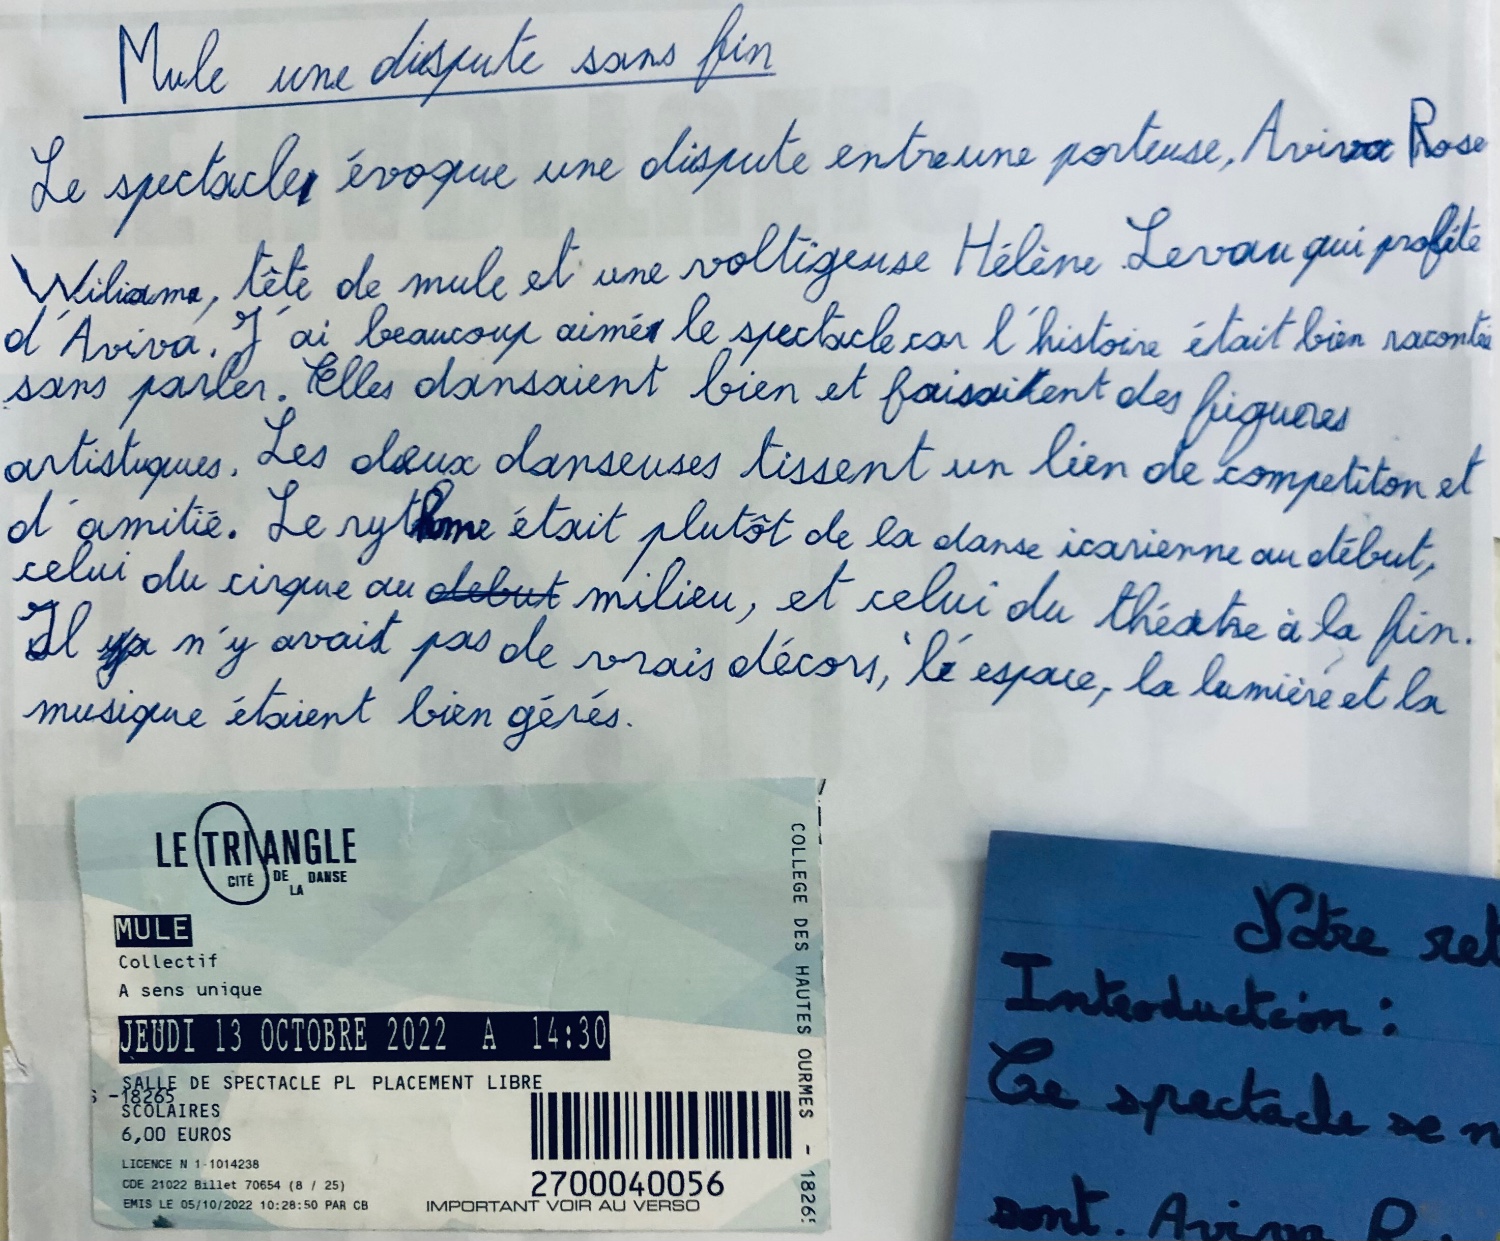 Mule une dispute sans fin
Le spectacle évoque une dispute entre une porteuse, Aviva Rose
Wiliame, tête de mule et une voltigeuse Hélène Levau qui profite
d'Aviva. J'ai beaucoup aimé le spectacle car l'histoire était bien racontée
sans parler. Elles dansaient bien et faisaient des figures
artistiques. Les deux danseuses tissent un lien de competiton et
d'amitié. Le rythme était plutôt de la danse icarienne au début,
celui du cirque au debut milieu, et celui du théatre à la fin.
Il n'y avait pas de vrais décors, l'espace, la lumière et la
musique étaient bien gérés.
LE TRIANGLE
CITÉ DE LA DANSE
MULE
Collectif
A sens unique
JEUDI 13 OCTOBRE 2022 A 14:30
SALLE DE SPECTACLE PL PLACEMENT LIBRE
S -18265
SCOLAIRES
6,00 EUROS
LICENCE N 1-1014238
CDE 21022 Billet 70654 (8 / 25)
EMIS LE 05/10/2022 10:28:50 PAR CB
2700040056
IMPORTANT VOIR AU VERSO
COLLEGE DES HAUTES OURMES - 18265
Notre ret
Introduction :
Ce spectacle se n
sont. Aviva R